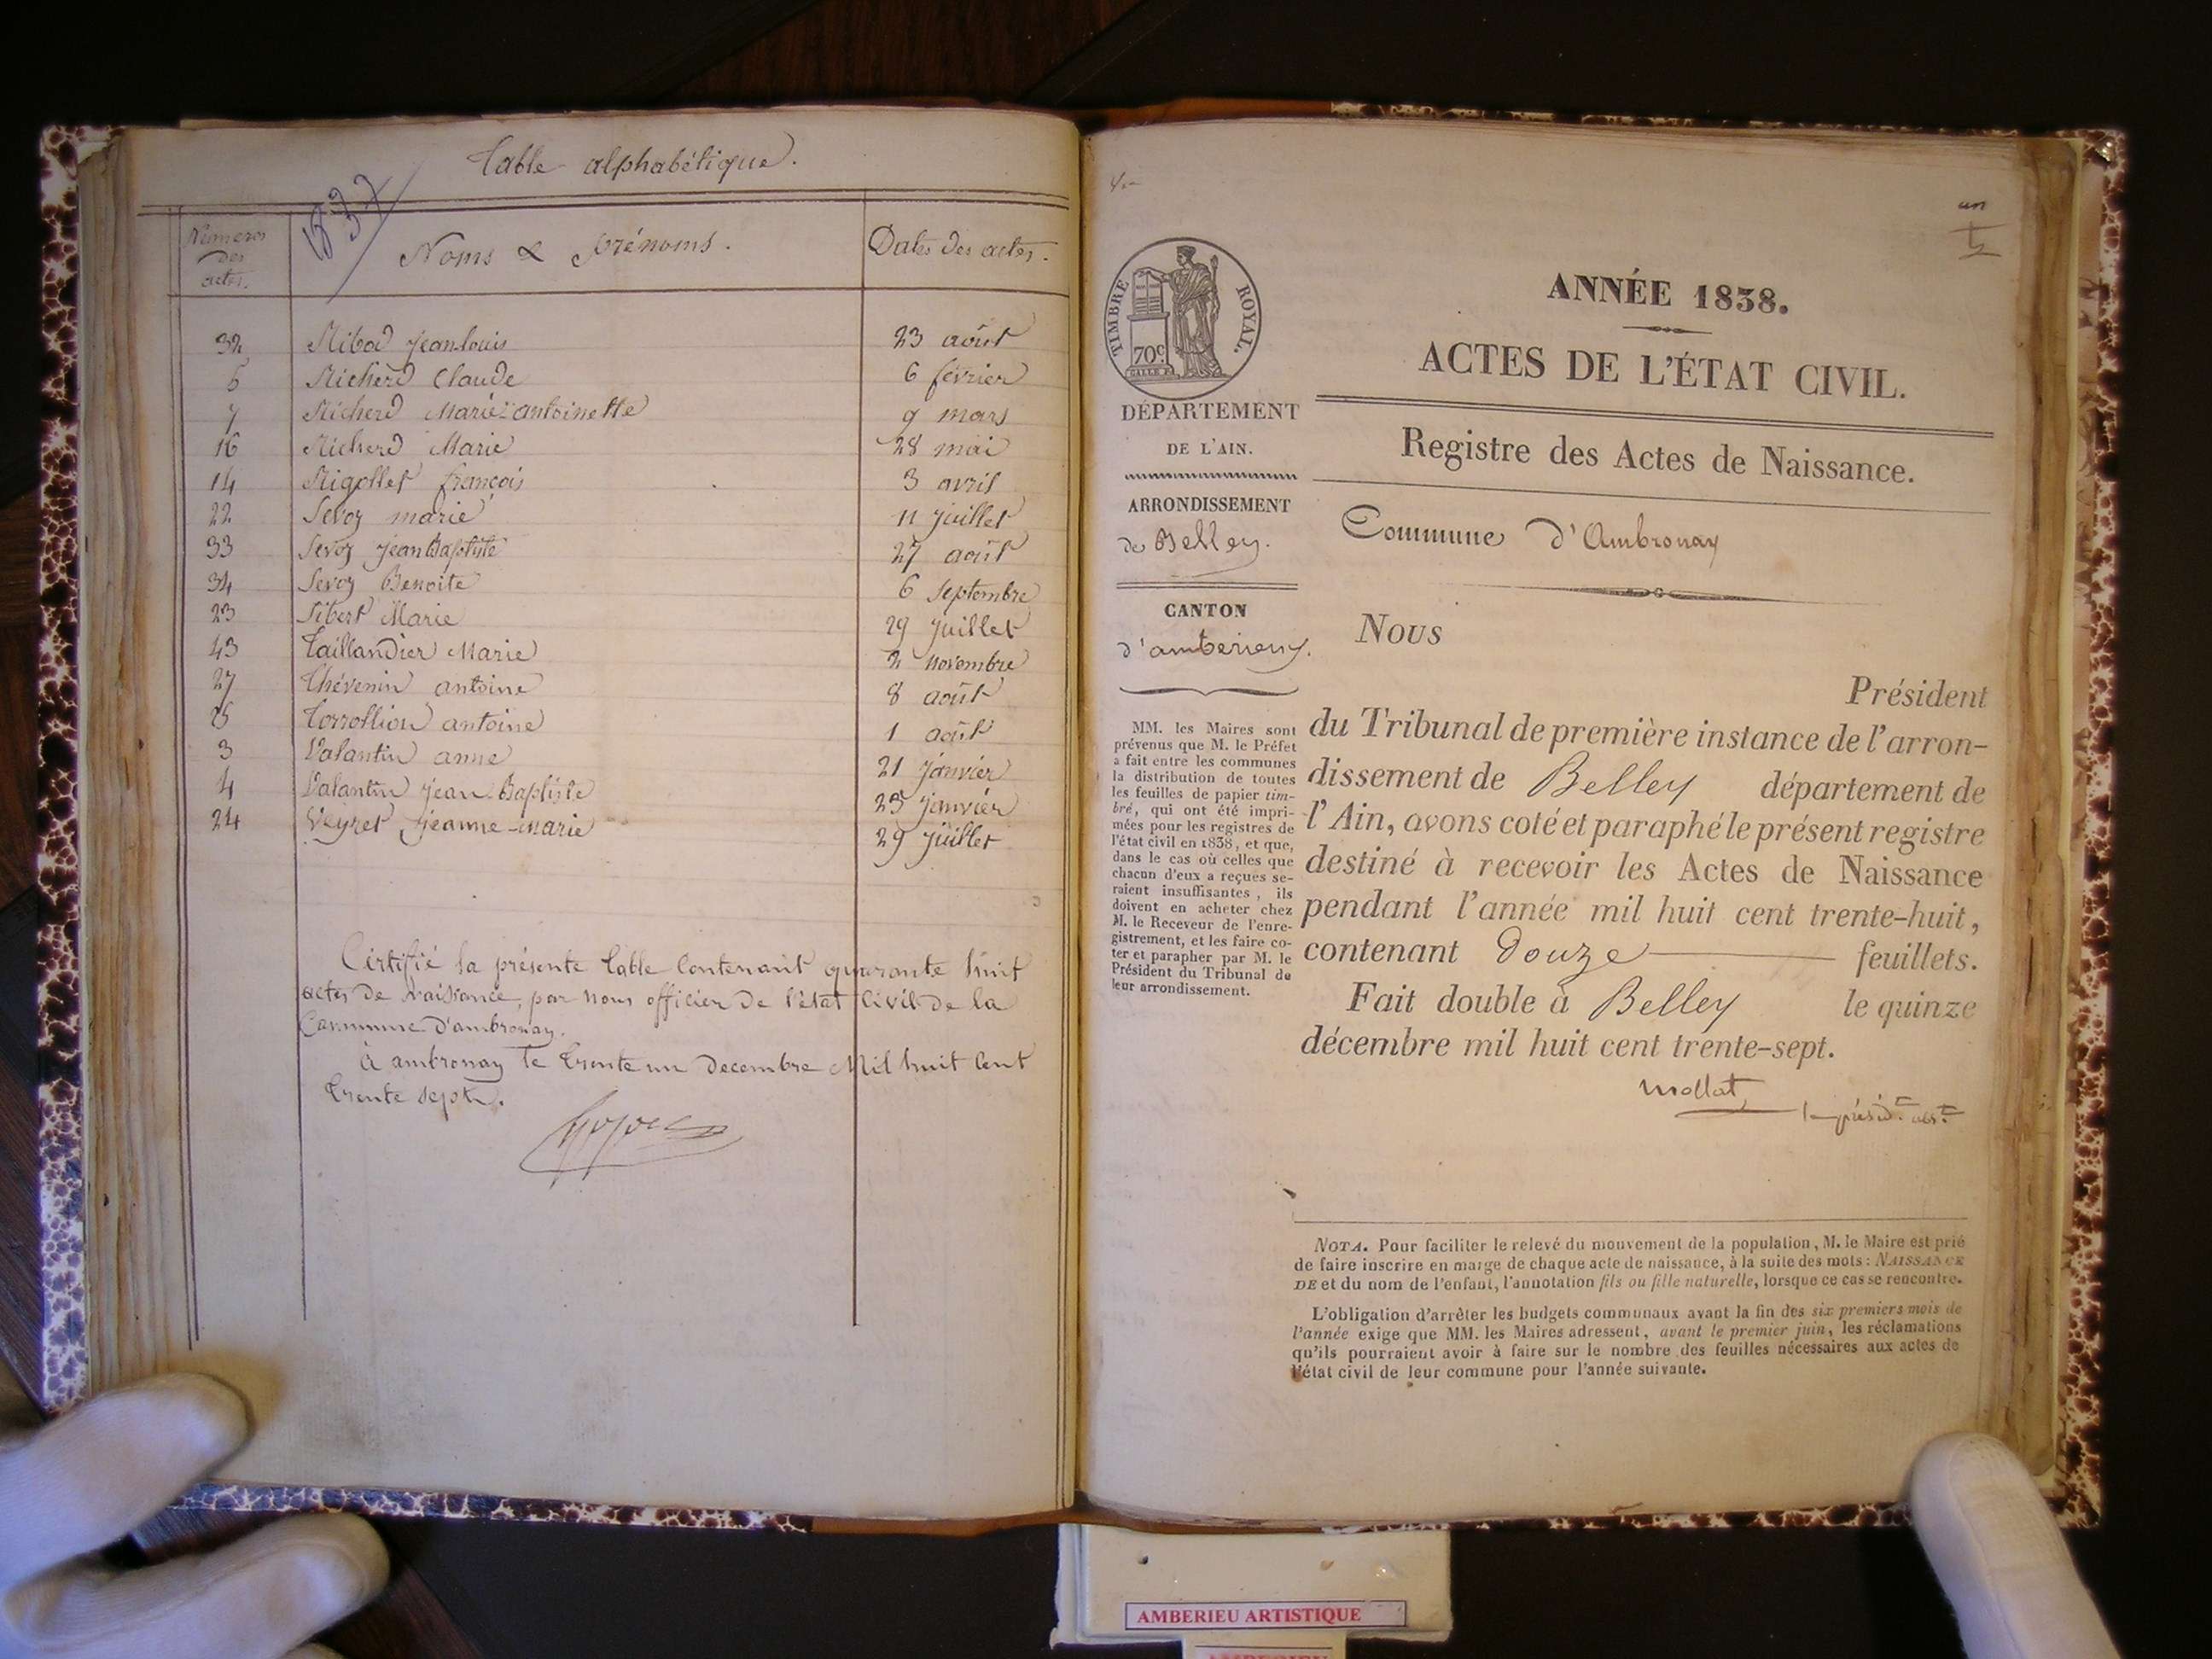 Table alphabétique.
1837
Numéros des actes.
Noms & prénoms.
Dates des actes.
32 Ribod Jean Louis 23 août
6 Richerd Claude 6 février
7 Richerd Marie antoinette 9 mars
16 Richerd Marie 28 mai
14 Rigollet françois 3 avril
22 Sevoz marie 11 juillet
33 Sevoz Jean Baptiste 27 août
34 Sevoz Benoite 6 Septembre
23 Sibert Marie 29 juillet
43 Taillandier Marie 2 novembre
27 Thévenin antoine 8 août
25 antoine 1 août
3 Valantin anne 21 janvier
4 Valantin Jean-Baptiste 25 janvier
24 Veyret Jeanne-marie 29 juillet
Certifié la présente table contenant quarante huit
actes de naissance, par nous officier de l'état civil de la
Commune d'ambronay.
A ambronay le trente un decembre Mil huit cent
trente sept.
un
TIMBRE ROYAL.
70c
ANNÉE 1838.
ACTES DE L'ÉTAT CIVIL.
Registre des Actes de Naissance.
DÉPARTEMENT
DE L'AIN.
ARRONDISSEMENT
de Belley.
CANTON
d'amberieux.
MM. les Maires sont
prévenus que M. le Préfet
a fait entre les communes
la distribution de toutes
les feuilles de papier tim-
bré, qui ont été impri-
mées pour les registres de
l'état civil en 1838, et que,
dans le cas où celles que
chacun d'eux a reçues se-
raient insuffisantes, ils
doivent en acheter chez
M. le Receveur de l'enre-
gistrement, et les faire co-
ter et parapher par M. le
Président du Tribunal de
leur arrondissement.
Commune d'Ambronay
Nous
Président
du Tribunal de première instance de l'arron-
dissement de Belley département de
l'Ain, avons coté et paraphé le présent registre
destiné à recevoir les Actes de Naissance
pendant l'année mil huit cent trente-huit,
contenant douze feuillets.
Fait double à Belley le quinze
décembre mil huit cent trente-sept.
Mollat
NOTA. Pour faciliter le relevé du mouvement de la population, M. le Maire est prié
de faire inscrire en marge de chaque acte de naissance, à la suite des mots : NAISSANCE
DE et du nom de l'enfant, l'annotation fils ou fille naturelle, lorsque ce cas se rencontre.
L'obligation d'arrêter les budgets communaux avant la fin des six premiers mois de
l'année exige que MM. les Maires adressent, avant le premier juin, les réclamations
qu'ils pourraient avoir à faire sur le nombre des feuilles nécessaires aux actes de
l'état civil de leur commune pour l'année suivante.
AMBERIEU ARTISTIQUE